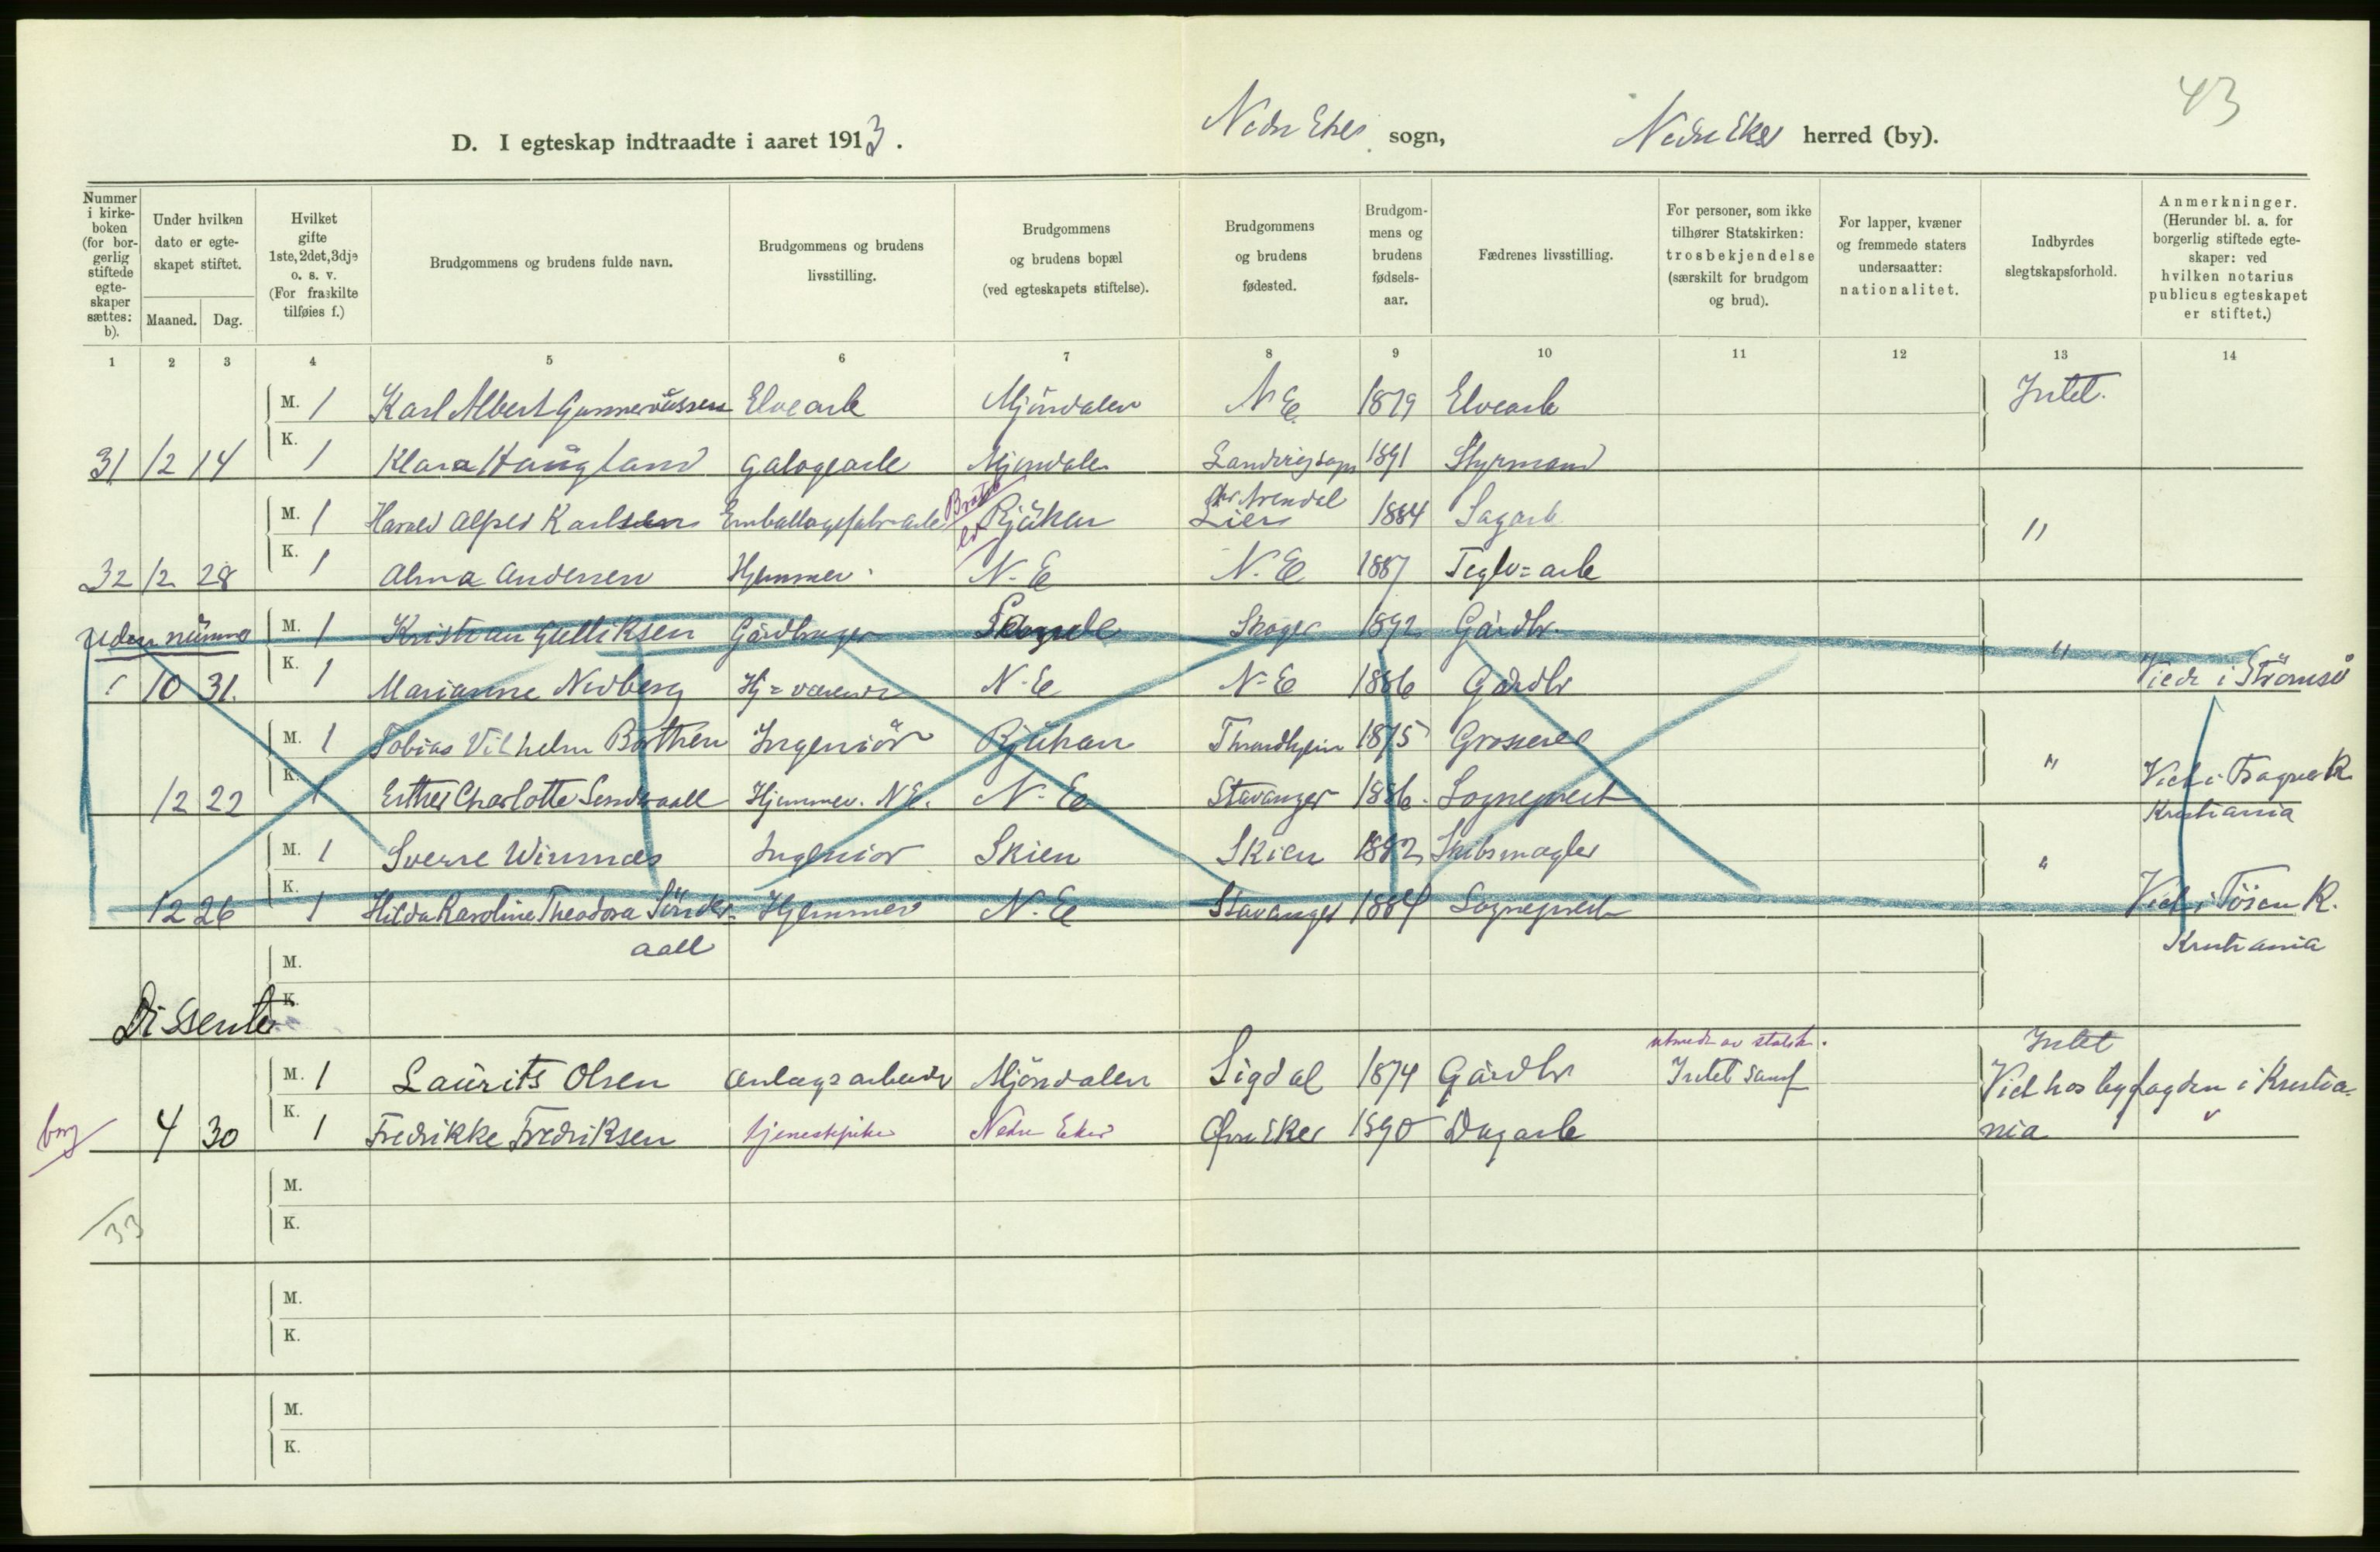 43
D. I egteskap indtraadte i aaret 1913. Nedre Eker sogn, Nedre Eker herred (by).
Nummer i kirkeboken (for borgerlig stiftede egteskaper sættes: b).
Under hvilken dato er egteskapet stiftet.
Maaned. Dag.
Hvilket gifte 1ste, 2det, 3dje o. s. v. (For fraskilte tilføies f.)
Brudgommens og brudens fulde navn.
Brudgommens og brudens livsstilling.
Brudgommens og brudens bopæl (ved egteskapets stiftelse).
Brudgommens og brudens fødested.
Brudgommens og brudens fødselsaar.
Fædrenes livsstilling.
For personer, som ikke tilhører Statskirken: trosbekjendelse (særskilt for brudgom og brud).
For lapper, kvæner og fremmede staters undersaatter: nationalitet.
Indbyrdes slegtskapsforhold.
Anmerkninger. (Herunder bl. a. for borgerlig stiftede egteskaper: ved hvilken notarius publicus egteskapet er stiftet.)
1 2 3 4 5 6 7 8 9 10 11 12 13 14
M. 1 Karl Albert Gunnerussen Elvearb Mjöndalen N E. 1879 Elvearb Intet.
31 12 14 K. 1 Klara Haugland galogearb Mjøndalen 1891 Styrmand
Arendal
M. 1 Harald Alfred Karlsen Emballagefabr=arb Rjukan Lier 1884 Sagarb "
32 12 28 K. 1 Alma Andersen Hjemmev. N. E N. E 1887 Teglv=arb
uden numer M. 1 Kristian Gulliksen Gårdbruger Sande Skoger 1892 Gårdbr. "
10 31. K. 1 Marianne Nedberg Hj=værende N. E N. E 1886 Gårdbr Viede i Strömsö
M. 1 Tobias Vilhelm Bothner Ingeniör Rjukan Throndhjem 1875 Grosserer "
12 22 K. 1 Esther Charlotte Sönderaall Hjemmev. N E. N. E Stavanger 1886. Sogneprest Viet i Fagerb K.
Kristiania
M. 1 Sverre Winnæs Ingeniør Skien Skien 1882 Skibsmægler "
12 26 K. 1 Hilda Karoline Theodora Sönder- Hjemmev N. E Stavanger 1884 Sogneprest Viet i Töien K.
aall Kristiania
M.
Dissenter K.
utmeldt av statsk.
Intet
M. 1 Laurits Olsen Anlægsarbeider Mjöndalen Sigdal 1874 Gårdbr Intet samf Viet hos byfogden i Kristia-
borg 4 30 K. 1 Fredrikke Fredriksen tjenestepike Nedre Eker Øvre Eker 1890 Dagarb nia
M.
33 K.
M.
K.
M.
K.